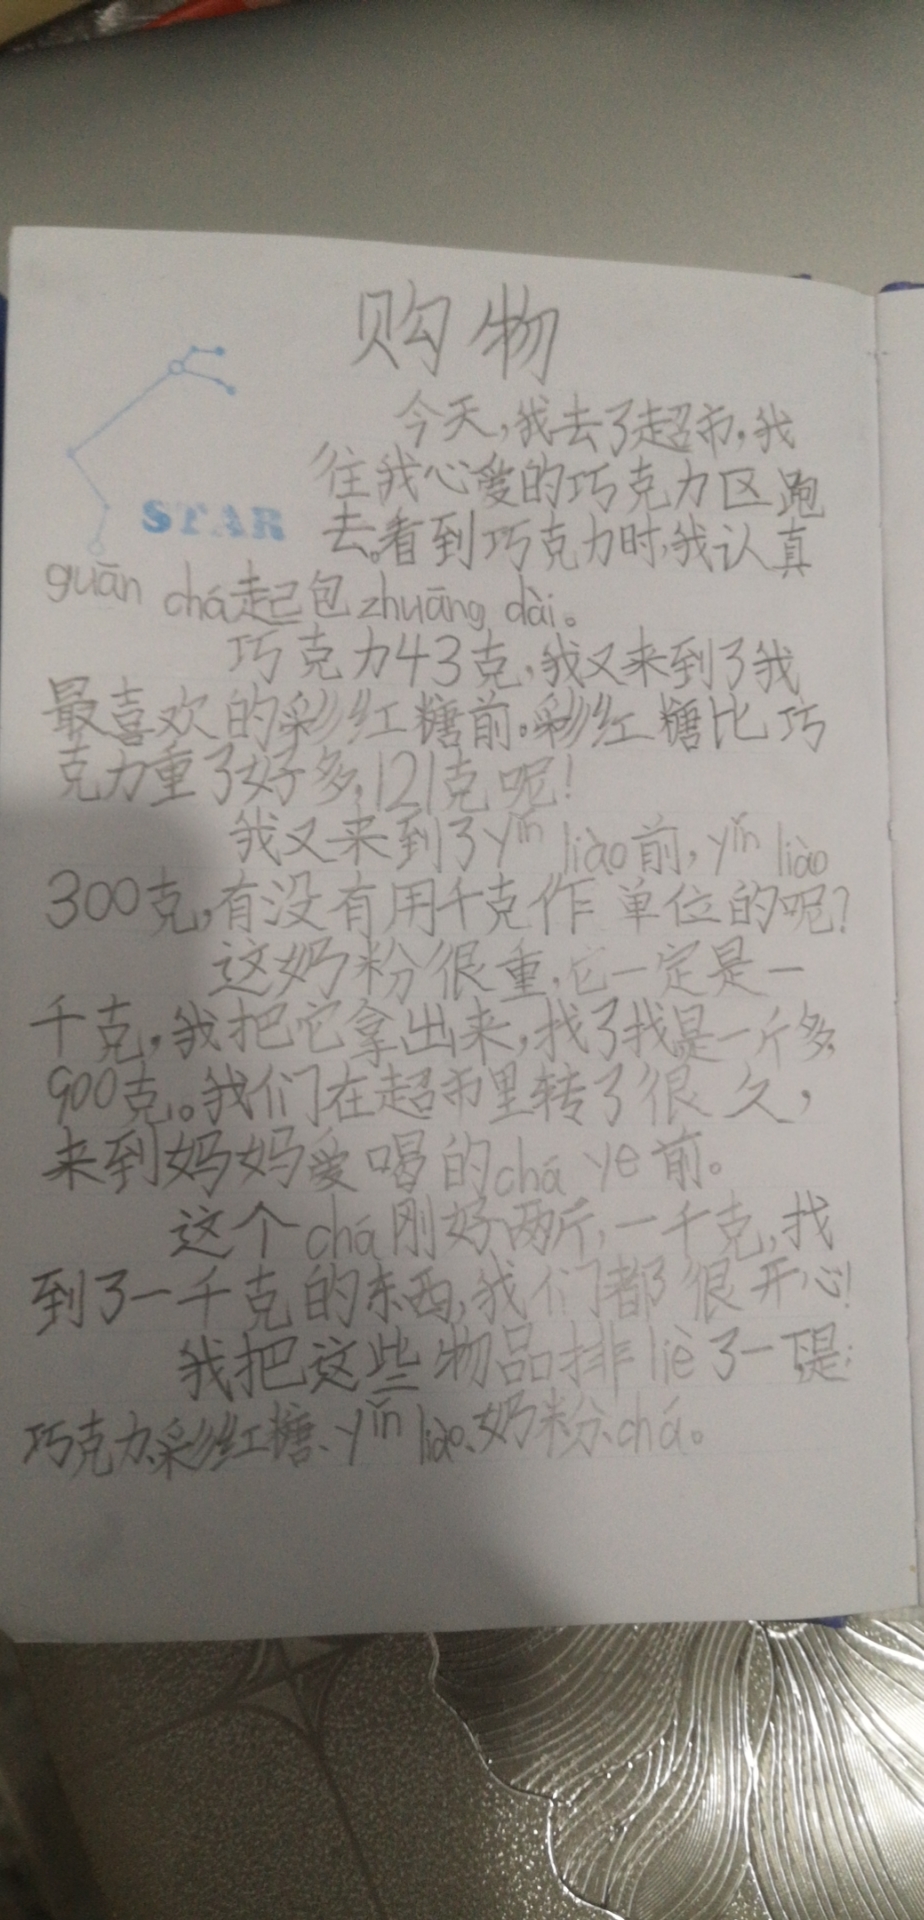 购物
今天,我去了超市,我
往我心爱的巧克力区跑
STAR
去。看到巧克力时,我认真
guān chá起包zhuāng dài。
巧克力43克,我又来到了我
最喜欢的彩红糖前。彩红糖比巧
克力重了好多,121克呢!
我又来到了yǐn liào前,yǐn liào
300克,有没有用千克作单位的呢?
这奶粉很重,它一定是一
千克,我把它拿出来,找了找是一斤多,
900克。我们在超市里转了很久,
来到妈妈爱喝的chá ye前。
这个chá刚好两斤,一千克,找
到了一千克的东西,我们都很开心!
我把这些物品排liè了一下是:
巧克力、彩红糖、yǐn liào、奶粉、chá。